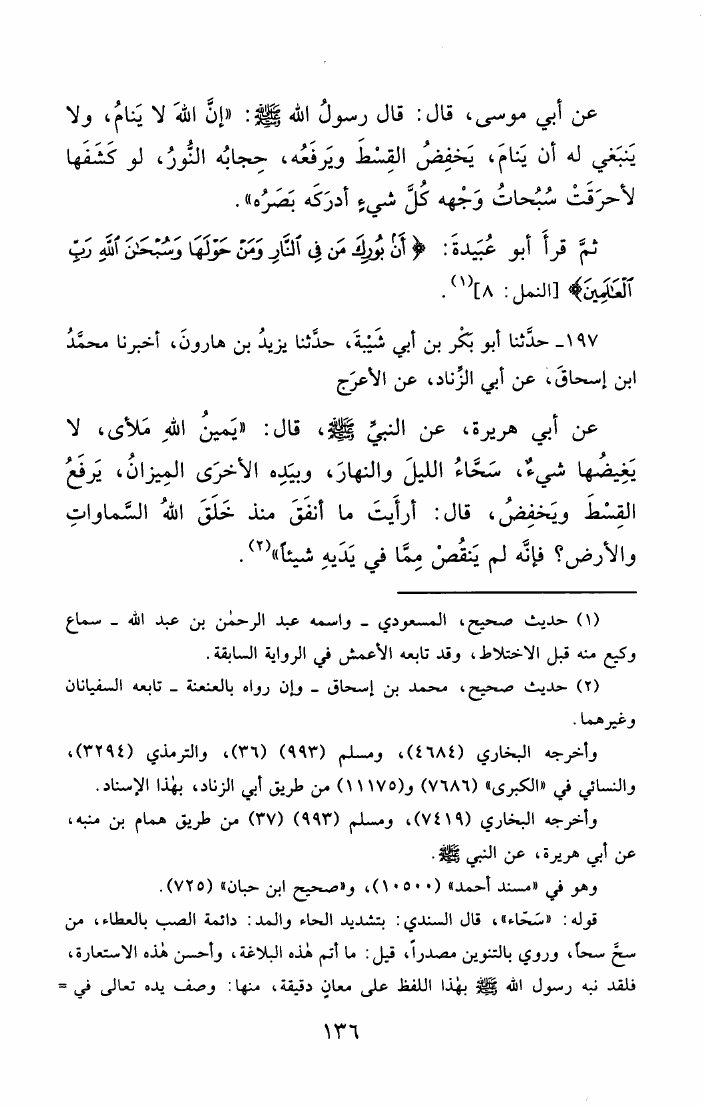 عن أبي موسى، قال: قال رسولُ الله ﷺ: «إنَّ اللهَ لا يَنامُ، ولا
يَنبَغي له أن يَنامَ، يَخفِضُ القِسْطَ ويَرفَعُه، حِجابُه النُّورُ، لو كَشَفَها
لأحرَقَتْ سُبُحاتُ وَجْهه كُلَّ شيءٍ أدرَكَه بَصَرُه».
ثمَّ قرأَ أبو عُبَيدةَ: ﴿أَنۢ بُورِكَ مَن فِى ٱلنَّارِ وَمَنْ حَوْلَهَا وَسُبْحَٰنَ ٱللَّهِ رَبِّ
ٱلْعَٰلَمِينَ﴾ [النمل: ٨](١).
١٩٧ـ حدَّثنا أبو بَكْر بن أبي شَيْبةَ، حدَّثنا يزيدُ بن هارونَ، أخبرنا محمَّدُ
ابن إسحاقَ، عن أبي الزِّناد، عن الأعرَج
عن أبي هريرة، عن النبيِّ ﷺ، قال: «يَمينُ اللهِ مَلأى، لا
يَغِيضُها شيءٌ، سَحَّاءُ الليلَ والنهارَ، وبيَدِه الأخرَى المِيزانُ، يَرفَعُ
القِسْطَ ويَخفِضُ، قال: أرأَيتَ ما أنفَقَ منذ خَلَقَ اللهُ السَّماواتِ
والأرضَ؟ فإنَّه لم يَنقُصْ مِمَّا في يَدَيهِ شيئاً»(٢).
(١) حديث صحيح، المسعودي ـ واسمه عبد الرحمٰن بن عبد الله ـ سماع
وكيع منه قبل الاختلاط، وقد تابعه الأعمش في الرواية السابقة.
(٢) حديث صحيح، محمد بن إسحاق ـ وإن رواه بالعنعنة ـ تابعه السفيانان
وغيرهما.
وأخرجه البخاري (٤٦٨٤)، ومسلم (٩٩٣) (٣٦)، والترمذي (٣٢٩٤)،
والنسائي في «الكبرى» (٧٦٨٦) و(١١١٧٥) من طريق أبي الزناد، بهٰذا الإسناد.
وأخرجه البخاري (٧٤١٩)، ومسلم (٩٩٣) (٣٧) من طريق همام بن منبه،
عن أبي هريرة، عن النبي ﷺ.
وهو في «مسند أحمد» (١٠٥٠٠)، و«صحيح ابن حبان» (٧٢٥).
قوله: «سَحّاء»، قال السندي: بتشديد الحاء والمد: دائمة الصب بالعطاء، من
سحَّ سحاً، وروي بالتنوين مصدراً، قيل: ما أتم هٰذه البلاغة، وأحسن هٰذه الاستعارة،
فلقد نبه رسول الله ﷺ بهٰذا اللفظ على معانٍ دقيقة، منها: وصف يده تعالى في =
١٣٦